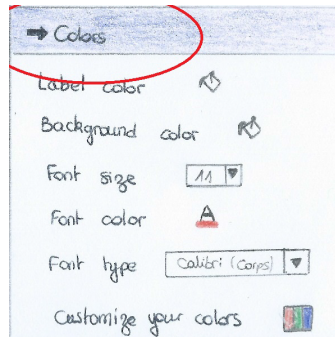 ➡ Colors
Label color
Background color
Font size 11
Font color A
Font type Calibri (Corps)
Customize your colors